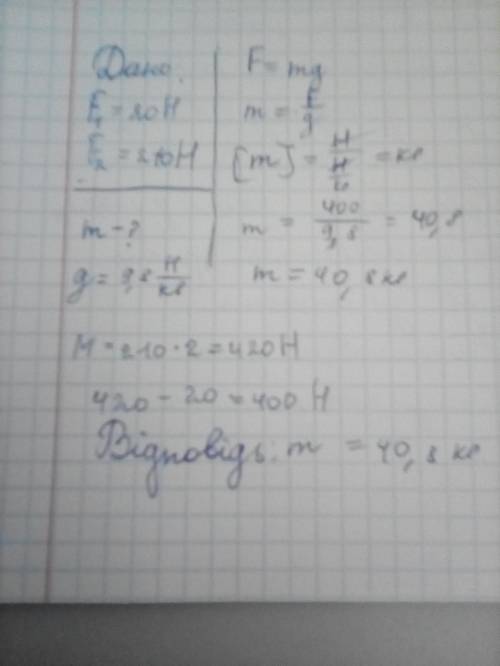 Дано:
F₁ = 20 Н
F₂ = 210 Н
m - ?
g = 9,8 Н/кг
F = mg
m = F/g
[m] = Н/(Н/кг) = кг
m = 400/9,8 = 40,8
m = 40,8 кг
М = 210 · 2 = 420 Н
420 - 20 = 400 Н
Відповідь: m = 40,8 кг